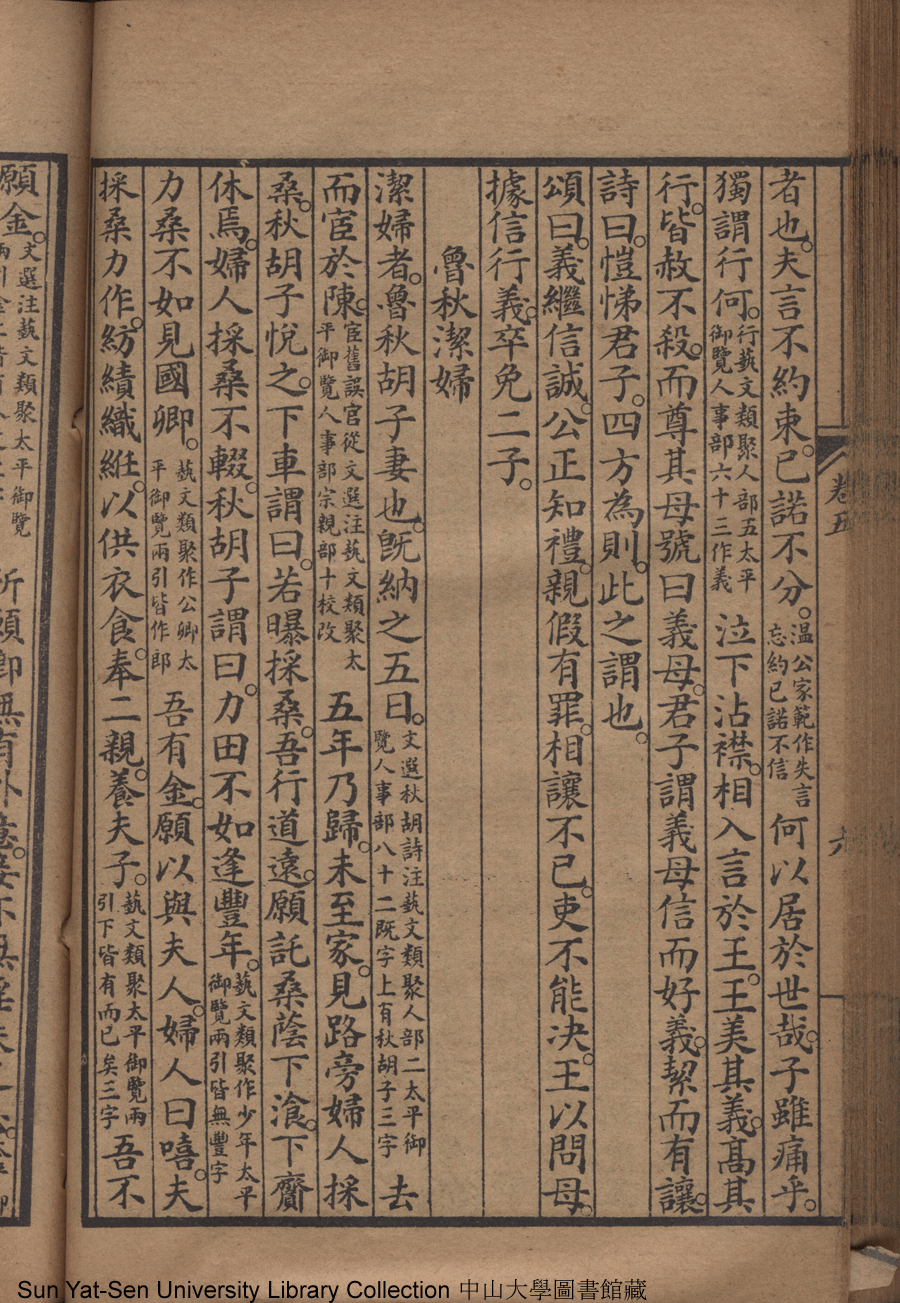 者也。夫言不約束。已諾不分。温公家範作失言忘約已諾不信何以居於世哉。子雖痛乎。
獨謂行何。行藝文類聚人部五太平御覽人事部六十三作義泣下沾襟。相入言於王。王美其義。高其
行。皆赦不殺。而尊其母號曰義母。君子謂義母信而好義。絜而有讓。
詩曰。愷悌君子。四方為則。此之謂也。
頌曰。義繼信誠。公正知禮。親假有罪。相讓不已。吏不能決。王以問母。
據信行義。卒免二子。
魯秋潔婦
潔婦者。魯秋胡子妻也。旣納之五日。文選秋胡詩注藝文類聚人部二太平御覽人事部八十二既字上有秋胡子三字去
而宦於陳。宦舊誤官從文選注藝文類聚太平御覽人事部宗親部十校改五年乃歸。未至家。見路旁婦人採
桑。秋胡子悅之。下車謂曰。若曝採桑。吾行道遠。願託桑蔭下飡。下齎
休焉。婦人採桑不輟。秋胡子謂曰。力田不如逢豐年。藝文類聚作少年太平御覽兩引皆無豐字
力桑不如見國卿。藝文類聚作公卿太平御覽兩引皆作郎吾有金。願以與夫人。婦人曰嘻。夫
採桑力作。紡績織紝。以供衣食。奉二親。養夫子。藝文類聚太平御覽兩引下皆有而已矣三字吾不
願金。文選注藝文類聚太平御覽
卷五
六
Sun Yat-Sen University Library Collection 中山大學圖書館藏